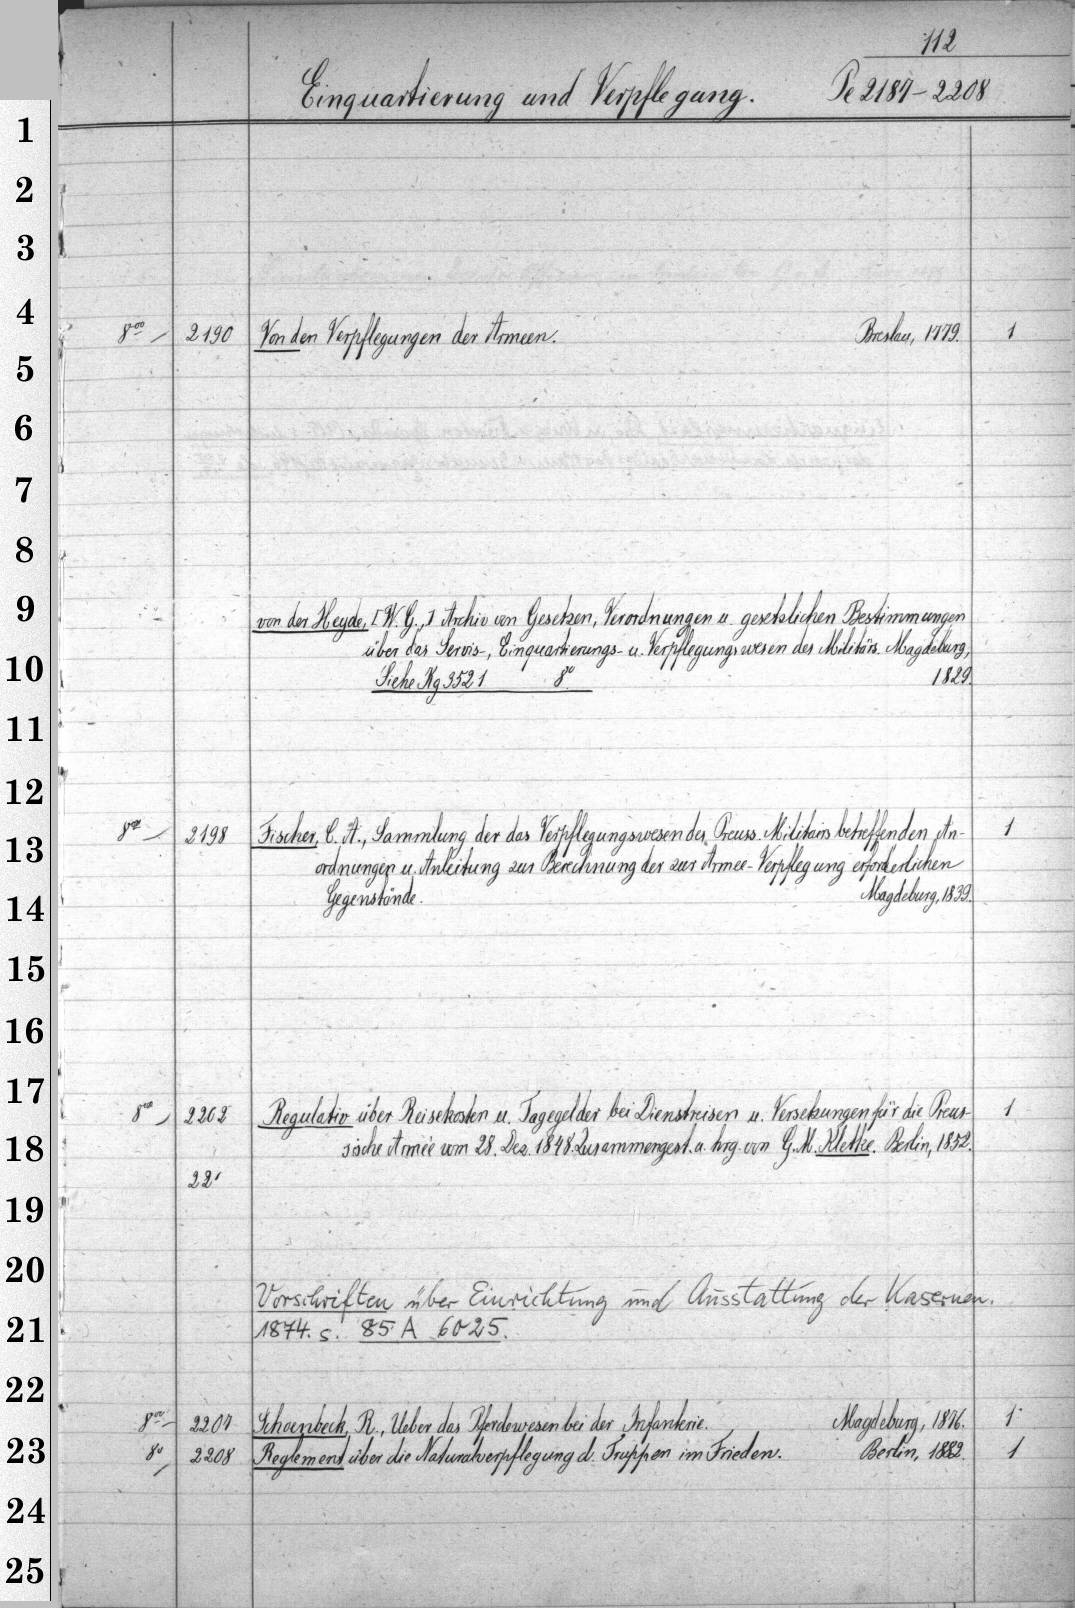 112
Einquartierung und Verpflegung. Pe 2187-2208
1
2
3
4
8°° 2190 Von den Verpflegungen der Armeen. Breslau, 1779. 1
5
6
7
8
9
von der Heyde, [W. G.,] Archiv von Gesetzen, Verordnungen u. gesetzlichen Bestimmungen
über das Servis-, Einquartierungs- u. Verpflegungswesen des Militärs. Magdeburg,
10
Siehe Kg 3521 8° 1829.
11
12
8° 2198 Fischer, C. A., Sammlung der das Verpflegungswesen des Preuss. Militairs betreffenden An- 1
13
ordnungen u. Anleitung zur Berechnung der zur Armee-Verpflegung erforderlichen
14
Gegenstände. Magdeburg, 1839.
15
16
17
8° 2202 Regulativ über Reisekosten u. Tagegelder bei Dienstreisen u. Versetzungen für die Preus- 1
18
sische Armee vom 28. Dez. 1848. Zusammengest. u. hrg. von G. M. Kletke. Berlin, 1852.
22
19
20
Vorschriften über Einrichtung und Ausstattung der Kasernen.
21
1874. s. 85 A 6025.
22
8°° 2207 Schoenbeck, R., Ueber das Pferdewesen bei der Infanterie. Magdeburg, 1876. 1
23
8° 2208 Reglement über die Naturalverpflegung d. Truppen im Frieden. Berlin, 1882. 1
24
25